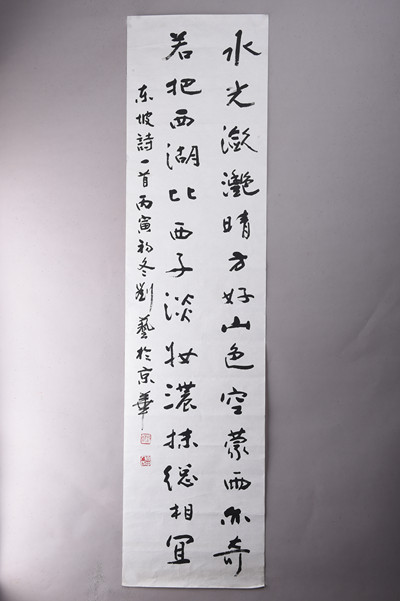 水光潋灔晴方好山色空蒙雨亦奇
若把西湖比西子淡妆濃抹總相宜
东坡詩一首丙寅初冬劉藝於京華